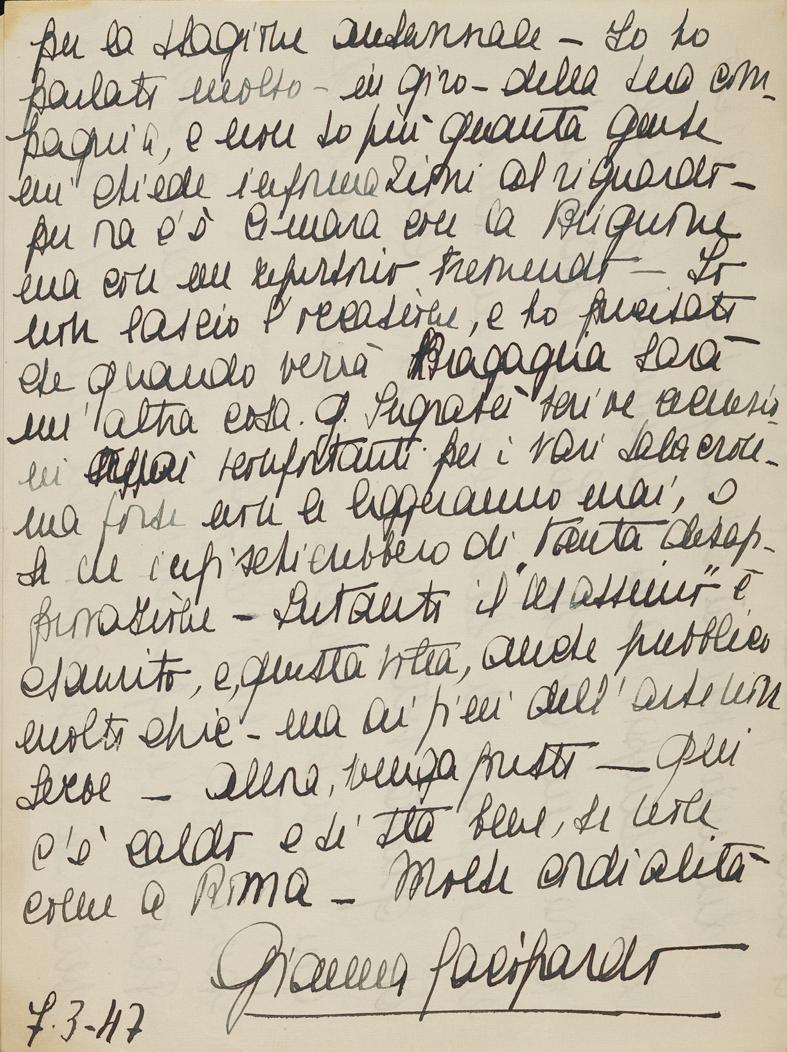 per la stagione autunnale – Io ho
parlato molto – in giro – della sua com-
pagnia, e non so più quanta gente
mi chiede informazioni al riguardo –
per ora c'è Cimara con la Brignone
ma con un repertorio tremendo – Io
non lascio l'occasione, e ho precisato
che quando verrà Bragaglia sarà
un' altra cosa. G. Ingrassi scrive recensio-
ni assai sconfortanti per i vari Salacrou –
ma forse non le leggeranno mai, o
se ne infischierebbero di tanta disap-
provazione – Intanto il "Massimo" è
esaurito, e, questa volta, anche pubblico
molto chic – ma ai fini dell' arte non
serve – Allora, venga presto – Qui
c'è caldo e si sta bene, se vuole
come a Roma – Molte cordialità
Gianna
7.3-47